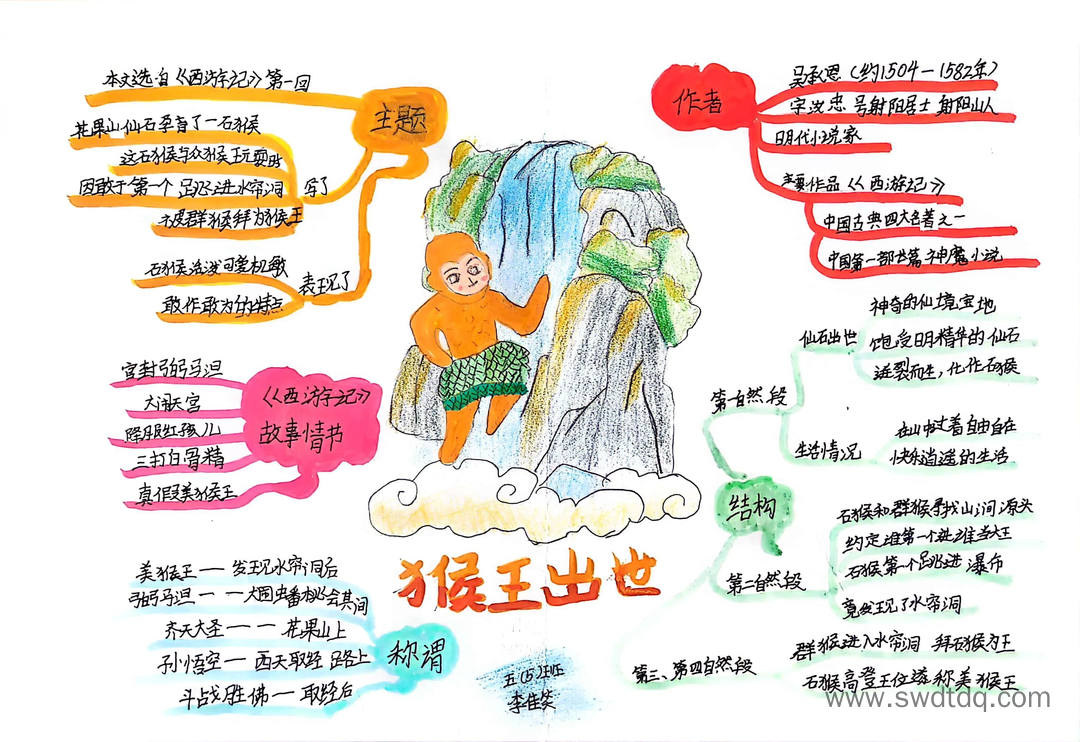 猴王出世
五（5）班
李佳笑
主题
本文选自《西游记》第一回
写了
花果山仙石孕育了一石猴
这石猴与众猴玩耍时
因敢于第一个跳进水帘洞
被群猴拜为猴王
表现了
石猴活泼可爱机敏
敢作敢为的特点
《西游记》
故事情节
官封弼马温
大闹天宫
降服红孩儿
三打白骨精
真假美猴王
称谓
美猴王——发现水帘洞后
弼马温——大闹蟠桃会其间
齐天大圣——花果山上
孙悟空——西天取经路上
斗战胜佛——取经后
作者
吴承恩（约1504—1582年）
字汝忠 号射阳居士 射阳山人
明代小说家
主要作品《西游记》
中国古典四大名著之一
中国第一部长篇神魔小说
结构
第一自然段
仙石出世
神奇的仙境宝地
饱受日月精华的仙石
迸裂而生，化作石猴
生活情况
在山中过着自由自在
快乐逍遥的生活
第二自然段
石猴和群猴寻找山涧源头
约定谁第一个进谁当大王
石猴第一个跳进瀑布
竟发现了水帘洞
第三、第四自然段
群猴进入水帘洞 拜石猴为王
石猴高登王位遂称美猴王
www.swdtdq.com